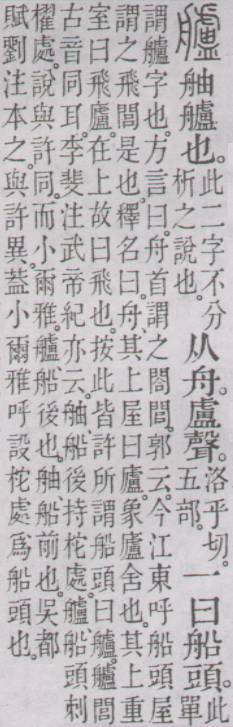 艫舳艫也。此二字不分析之說也。从舟盧聲。洛乎切。五部。一曰船頭。此單
謂艫字也。方言曰。舟首謂之閤閭。郭云。今江東呼船頭屋
謂之飛閭是也。釋名曰。舟、其上屋曰廬。象廬舍也。其上重
室曰飛廬。在上故曰飛也。按此皆許所謂船頭曰艫。艫閭
古音同耳。李斐注武帝紀亦云。舳、船後持柁處。艫、船頭刺
櫂處。說與許同。而小爾雅。艫、船後也。舳、船前也。吳都
賦劉注本之。與許異。葢小爾雅呼設柁處爲船頭也。